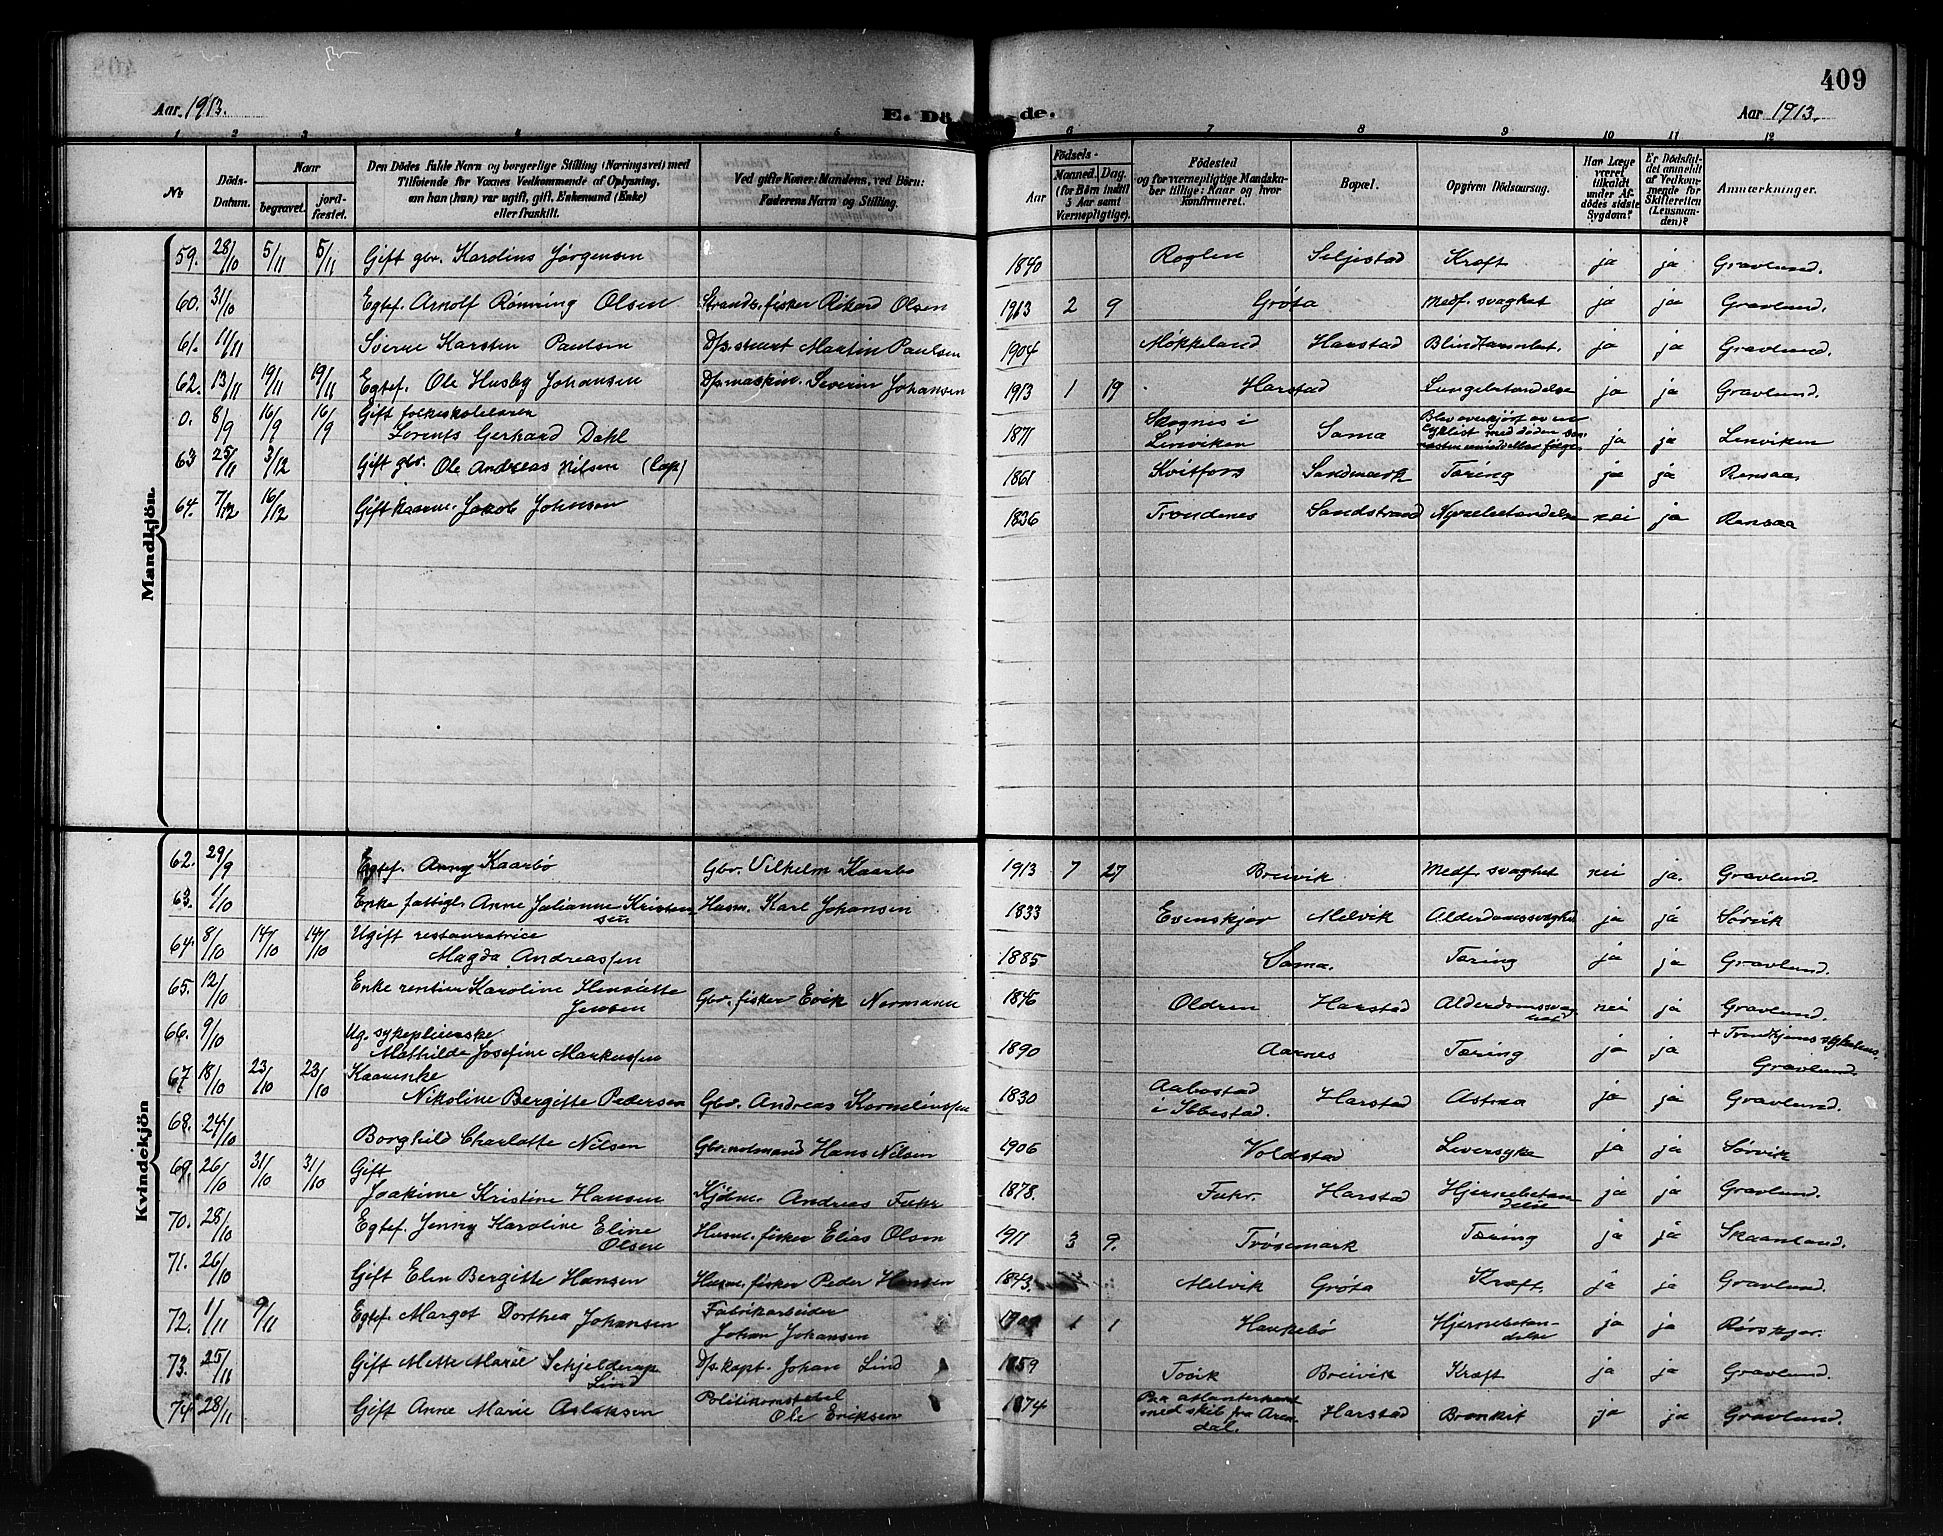 409
Aar 1913.
E. Dö de.
Aar 1913.
1 2 3 4 5 6 7 8 9 10 11 12
No
Döds-Datum.
Naar
begravet.
jord-fæstet.
Den Dödes fulde Navn og borgerlige Stilling (Næringsvei) med
Tilföiende för Voxnes Vedkommende af Oplysning,
om han (hun) var ugift, gift, Enkemand (Enke)
eller fraskilt.
Ved gifte Koner: Mandens, ved Börn:
Faderens Navn og Stilling.
Aar
Födsels-
Maaned. Dag.
(for Börn indtil
5 Aar samt
Værnepligtige).
Födested
og for værnepligtige Mandska-
ber tillige: Naar og hvor
konfirmeret.
Bopæl.
Opgiven Dödsaarsag.
Har Læge
været
tilkaldt
under Af-
dödes sidste
Sygdom?
Er Dödsfal-
det anmeldt
af Vedkom-
mende for
Skifteretten
(Lensman-
den)?
Anmærkninger.
Mandkjön.
59. 28/10 5/11 5/11 Gift gbr. Kardius Jørgensen 1840 Roglen Seljestad Kræft ja ja Gravlund.
60. 31/10 Egtef. Arnolf Rønning Olsen Strands. fisker Rikard Olsen 1913 2 9 Grøta Medf. svaghet ja ja Gravlund.
61. 11/11 Sverre Karsten Paulsen D/s. stuert Martin Paulsen 1904 Møkkeland Harstad Blindtarmbet. ja ja Gravlund.
62. 13/11 19/11 19/11 Egtef. Ole Husby Johansen D/s maskin. Severin Johansen 1913 1 19 Harstad Lungebetændelse ja ja Gravlund.
0. 8/9 16/9 16/9 Gift folkeskolelærer
Lorents Gerhard Dahl 1871 Skognes i
Lenviken Sama Blev overkjørt av en
cyklist med døden som
næsten umiddelbar følge. ja ja Lenviken
63 25/11 3/12 Gift gbr. Ole Andreas Nilsen (Lap) 1861 Kvitfors Sandmark Tæring ja ja Rensaa.
64. 7/12 16/12 Gift kaarm. Jakob Johnsen 1836 Trondenes Sandstrand Nyrebetændelse nei ja Rensaa
Kvindekjön
62. 29/9 Egtef. Anny Kaarbø Gbr. Vilhelm Kaarbø 1913 7 27 Breivik Medf. svaghet nei ja. Gravlund.
63. 1/10 Enke fattigl. Anne Julianne Kristen-
sen Husm. Karl Johansen 1833 Evenskjær Melvik Alderdomssvaghet ja ja Sørvik
64 8/10 14/10 14/10 Ugift restauratrice
Magda Andreassen 1885 Sama. Tæring ja ja Gravlund.
65. 12/10 Enke rentier Karoline Henriette
Jensen Gbr. fisker Erik Normann 1846 Oldren Harstad Alderdomssvag-
het nei ja Gravlund.
66. 9/10 Ug. sykepleierske
Mathilde Josefine Markussen 1890 Aarnes Tæring ja ja + Trondhjems sykehus.
Gravlund.
67. 18/10 23/10 23/10 Kaarenke
Nikoline Bergitte Pedersen Gbr. Andreas Korneliussen 1830 Aabostad
i Ibbestad. Harstad Astma ja ja Gravlund.
68. 24/10 Borghild Charlotte Nilsen Gbr. notmand Hans Nilsen 1906 Voldstad Leversyke ja ja Sørvik
69. 26/10 31/10 31/10 Gift
Joakime Kristine Hansen Kjøbm. Andreas Fuhr 1878. Fuhr. Harstad Hjernebetæn-
delse ja ja Gravlund.
70. 28/10 Egtef. Jenny Karoline Eline
Olsen Husm. fisker Elias Olsen 1911 3 9. Trøsemark Tæring ja ja Skaanland.
71. 26/10 Gift Elen Bergitte Hansen Husm. fisker Peder Hansen 1843. Melvik Grøta Kræft. ja ja Gravlund.
72. 1/11 9/11 Egtef. Margot Dorthea Johansen Fabrikarbeider
Johan Johansen 1 1 Haukebø Hjernebetæn-
delse ja ja Rørskjær.
73. 25/11 Gift Mette Marie Schjelderup
Lind D/s. kapt. Johan Lind 1859 Tovik Breivik Kræft ja ja Gravlund.
74 28/11 Gift Anne Marie Aslaksen Politikonstabel
Ole Eriksen 1874 Paa atlanterhavet
med skib fra Aren-
dal. Harstad Bronkit ja ja Gravlund.